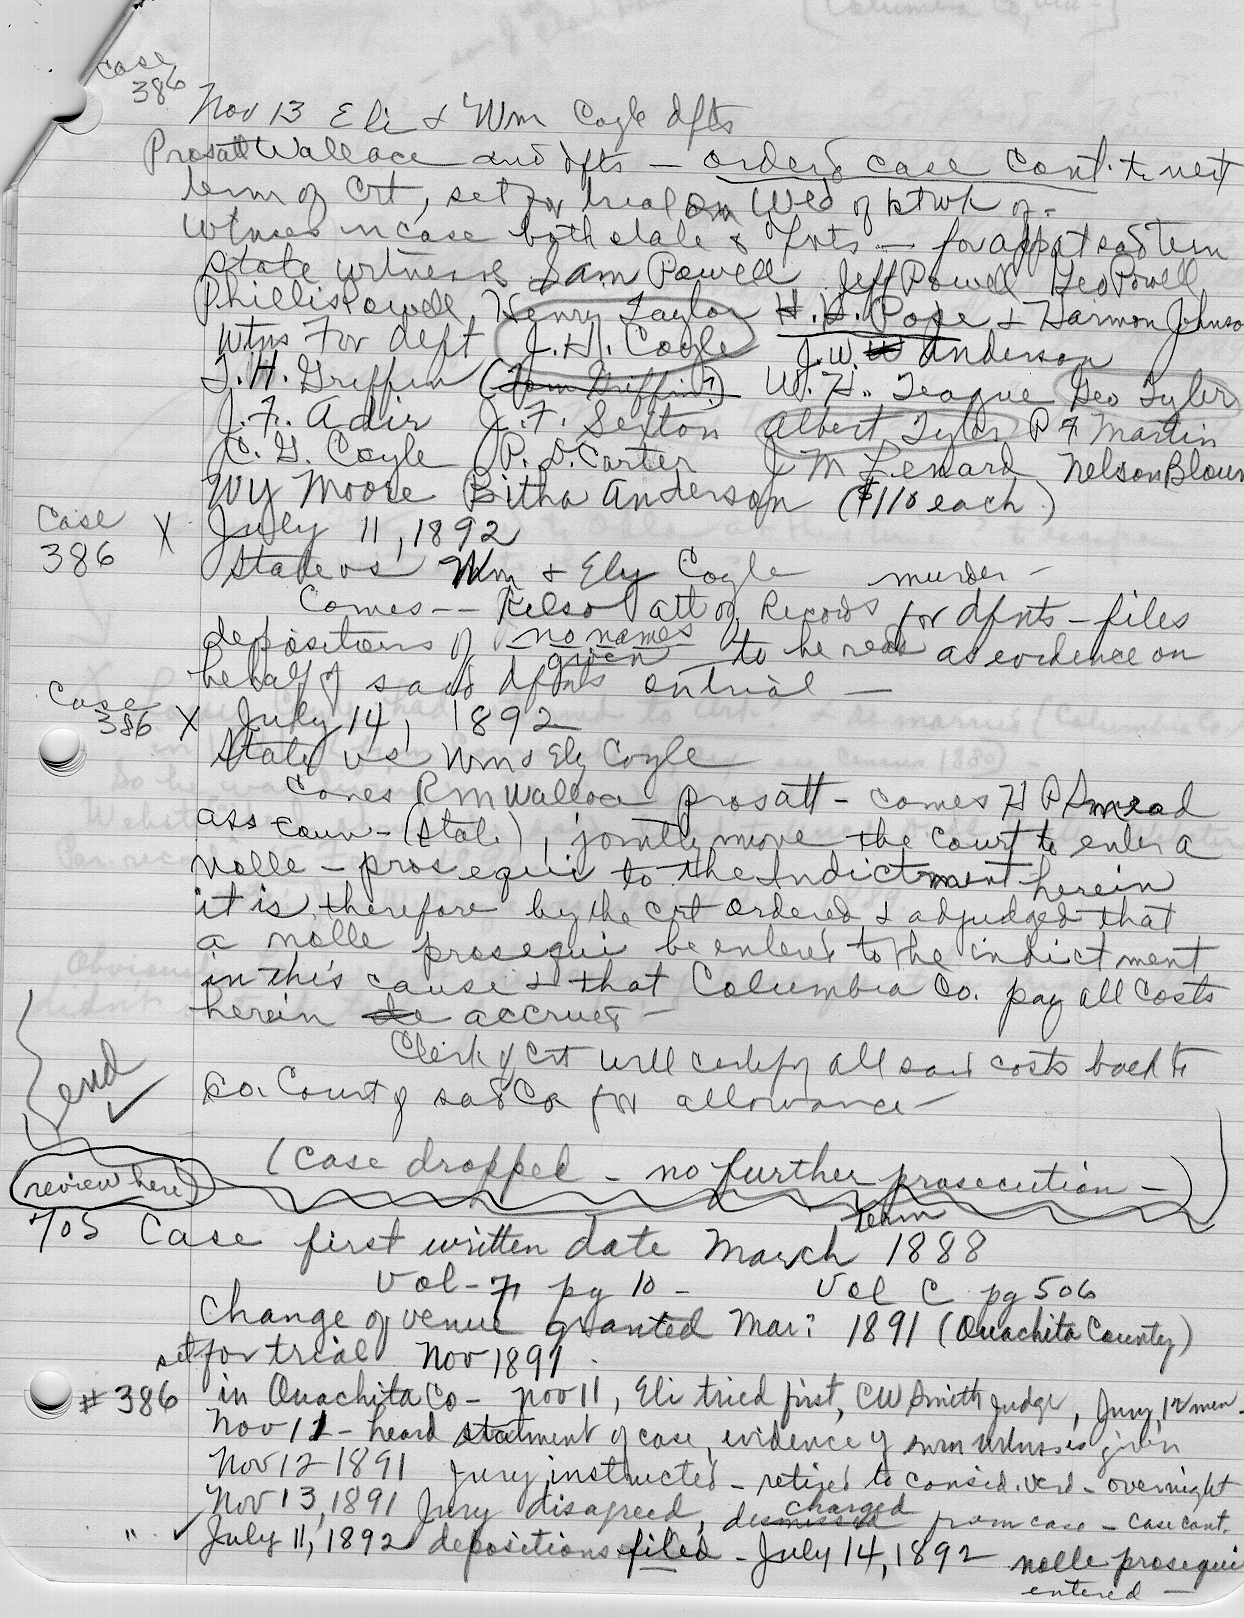 Case
386
Nov 13 Eli & Wm Cogle dfts
Prosatt Wallace and dfts — orders case cont. to next
term of Crt, set for trial on Wed of 1st wk of -
Wtnses in case both state & dfnts — for app at said term
State witnesses Sam Powell Jeff Powell Geo Powell
Phillis Powell Henry Taylor H. S. Pope & Harmon Johnso
Wtns For deft J. H. Cogle J. W. Anderson
T. H. Griffin (Tom Griffin?) W. H. Teague Geo Tyler
J. F. Adir J. F. Sexton Albert Tyler P F Martin
C. G. Cogle P. D. Carter J M Lenard Nelson Bloun
Wy Moore Bitha Anderson ($110 each)
Case
386 X July 11, 1892
State vs Wm & Ely Cogle murder -
Comes -- Kelso att of Records for dfnts - files
depositions of no names
given to be read as evidence on
behalf of said dfnts on trial —
Case
386 X July 14, 1892
State vs Wm & Ely Cogle
Comes R M Wallace prosatt - comes H P Smead
ass coun - (State), jointly move the court to enter a
nolle - prosequi to the Indictment herein
it is therefore by the crt ordered & adjudged that
a nolle prosequi be entered to the indictment
in this cause & that Columbia Co. pay all costs
herein accrued -
Clerk of Crt will certify all said costs back to
Co. Court of sad Co for allowance -
end
✓
(Case dropped - no further prosecution -)
review here
705 Case first written date March term 1888
Vol-7 pg 10 - Vol C pg 506
Change of venue granted Mar? 1891 (Ouachita County)
set for trial Nov 1891.
# 386 in Ouachita Co - nov 11, Eli tried first, CW Smith Judge, Jury 12 men -
Nov 11 - heard statment of case, evidence of witnesses given
Nov 12 1891 Jury instructed - retired to consid. verd - overnight
Nov 13, 1891 Jury disagreed, dismissed charged from case - case cont.
" ✓ July 11, 1892 depositions filed - July 14, 1892 nolle prosequi
entered —